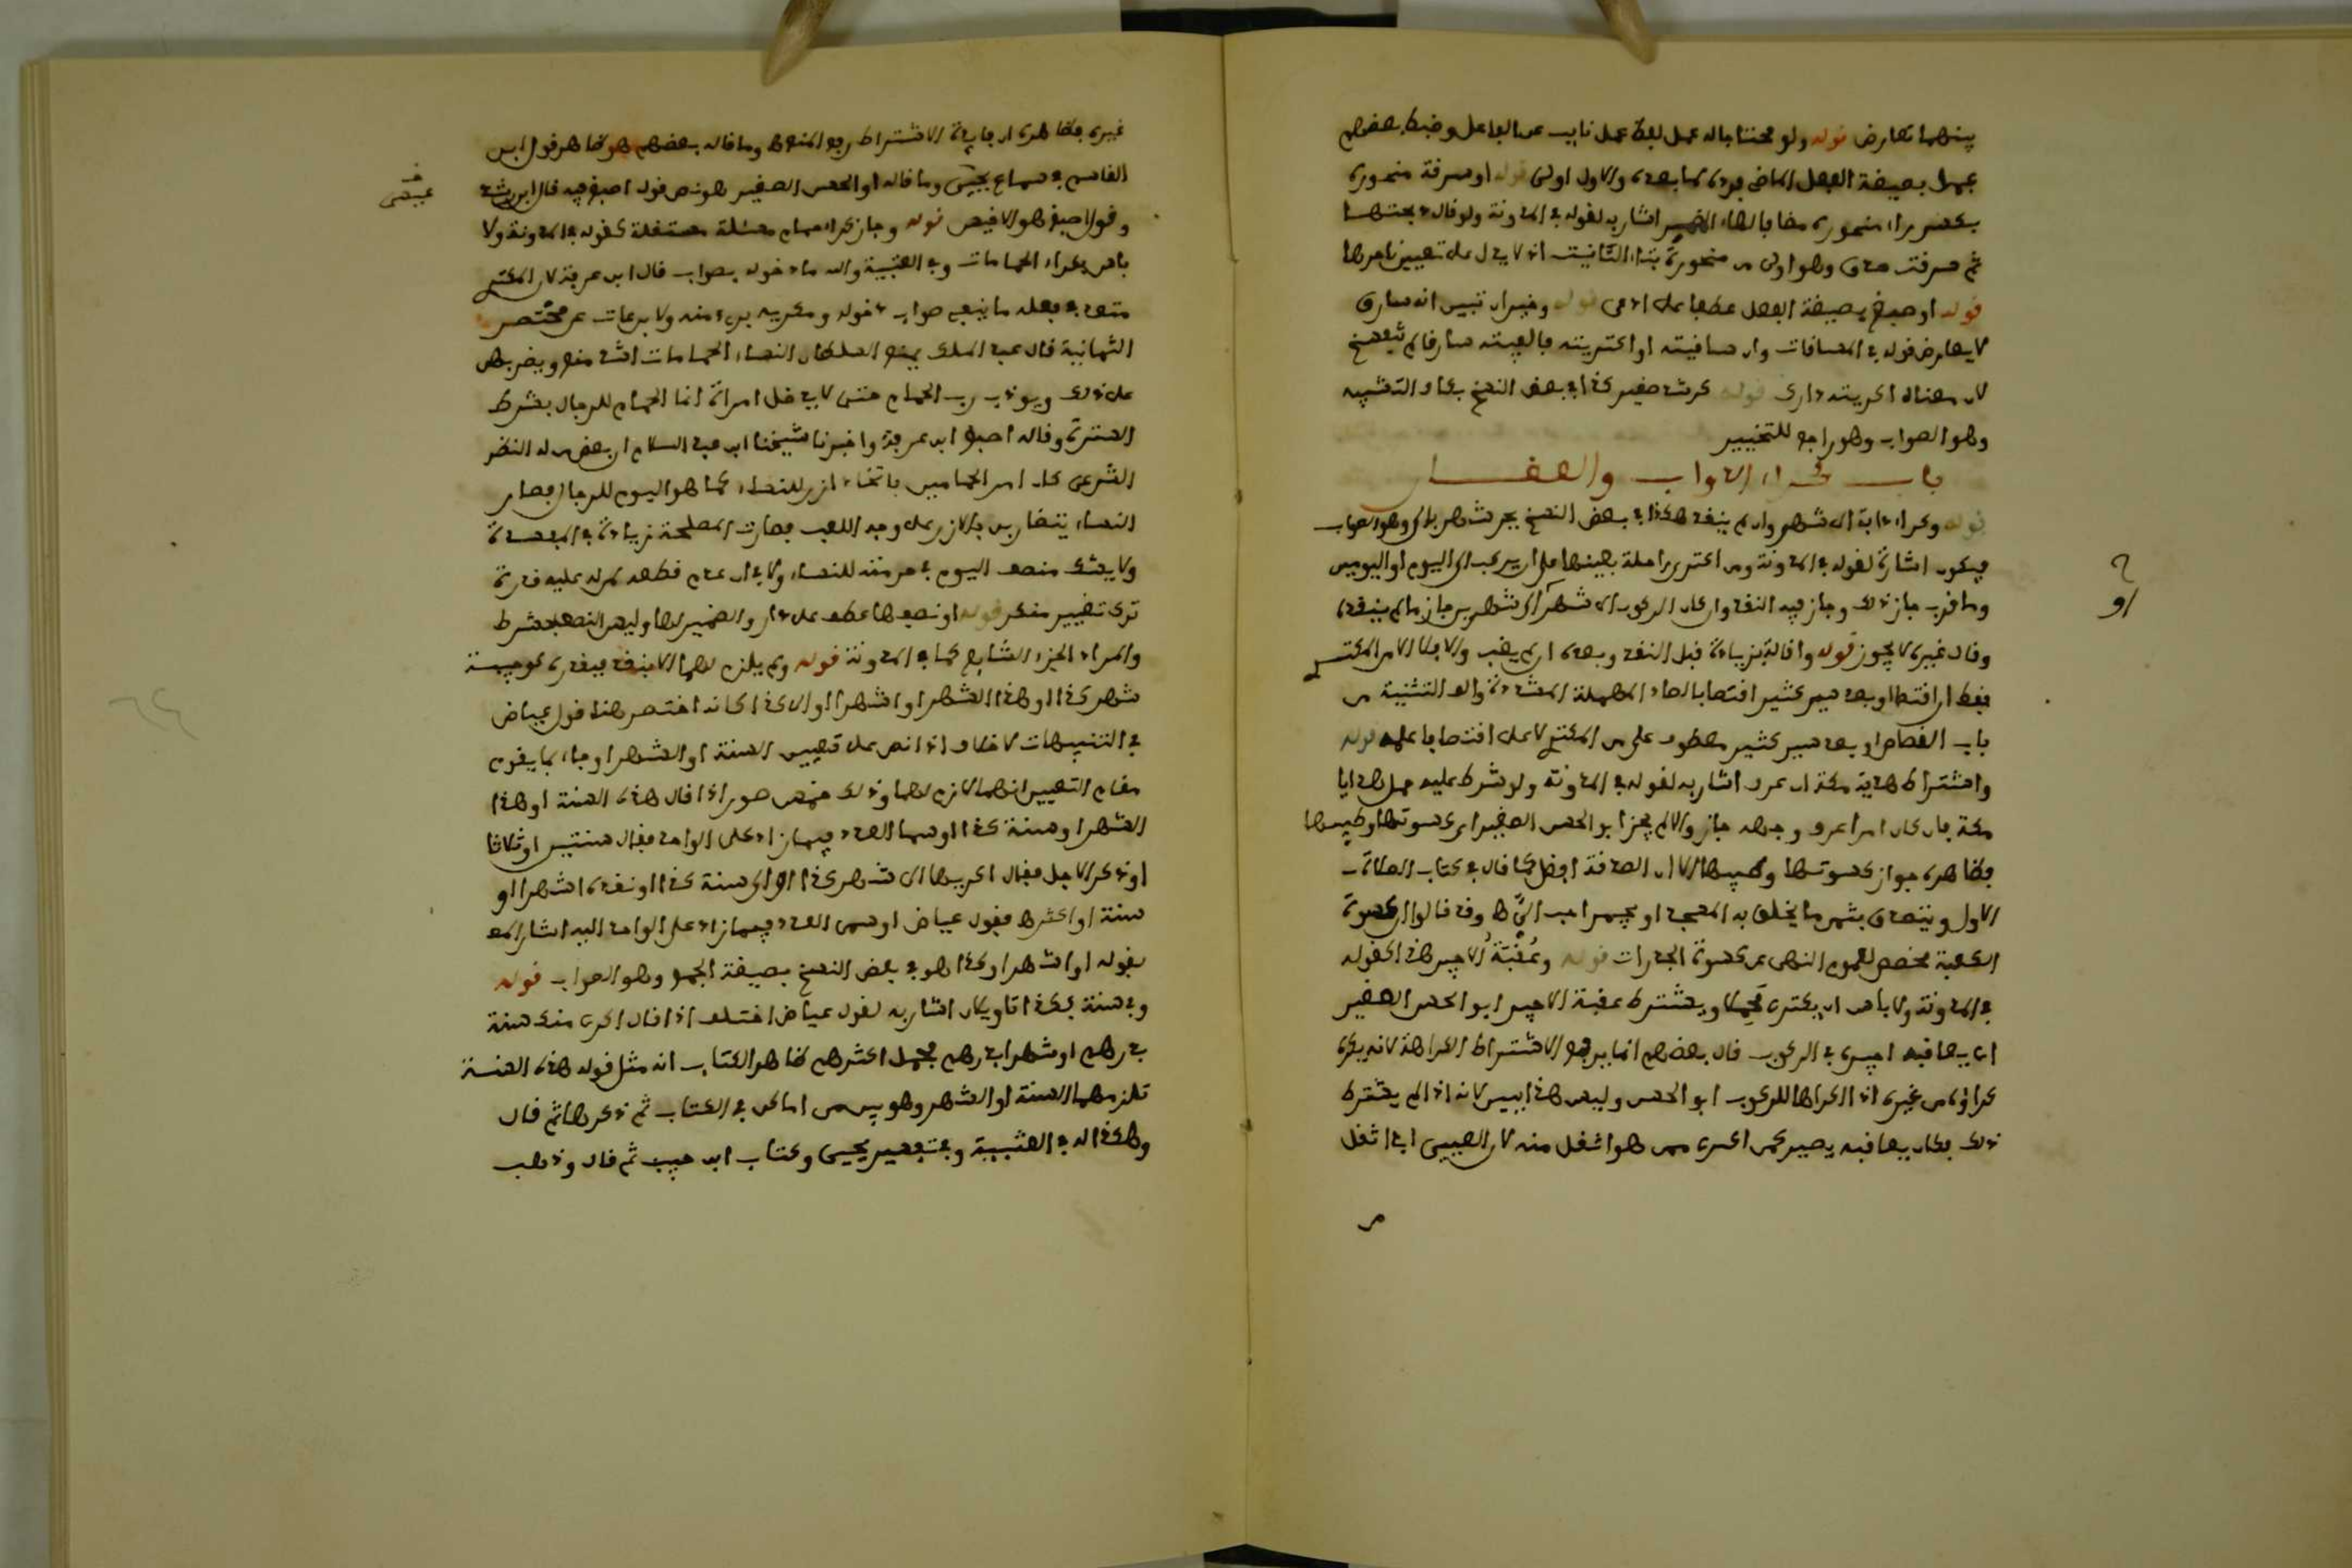 بينهما تعارض قوله ولو محتاجا له عمل لفظ عمل نايب عن الفاعل وضبطه بعضهم
عمل بصيغة الفعل الماضي فرده لما بعده والاول اولى قوله او سرقة منحوره
بكسر راء منحوره مضافا لهاء الضمير اشار به لقوله في المدونة ولو قال ذبحتها
ثم سرقت صدق وهو اولى من منحورة بتاء التانيث اذ لا يدل على تعيين نحرها
قوله او صبغ بصيغة الفعل عطفا على ادعى قوله وخير ان تبين انه سارق
لا يعارض قوله في المساقات وان ساقيته او اكتريته فالفيته سارقا لم ينفسخ
لان معناه اكريته دارك قوله كرشد صغير كذا في بعض النسخ بكاف التشبيه
وهو الصواب وهو راجع للتخيير
باب كراء الدواب والسفن
قوله وكراء دابة الى شهر وان لم ينقد هكذا في بعض النسخ بجر شهر بالى وهو الصواب
فيكون اشارة لقوله في المدونة ومن اكترى راحلة بعينها على ان يركب الى اليوم او اليومين
وما قرب جاز ذلك وجاز فيه النقد وان كان الركوب الى شهر او شهرين جاز ما لم ينقده
وقال غيره لا يجوز قوله واقالة بزيادة قبل النقد وبعده ان لم يغب والا فلا الا من المكتري
فقط ان اقتصا او بعد سير كثير اقتصا بالصاد المهملة المشددة والف التثنية من
باب القصاص او بعد سير كثير معطوف على من المكتري لا على اقتصا فاعلمه قوله
واشتراط هدية مكة ان عرف اشار به لقوله في المدونة ولو شرط عليه حمل هدايا
مكة فان كان امرا عرف وجهه جاز والا لم يجز ابو الحسن الصغير اى كسوتها وطيبها
فظاهره جواز كسوتها وطيبها الا ان الصدقة افضل كما قال في كتاب الصلاة
الاول ويتصدق بثمر ما يخلق به المسجد او يجمر احب الي وقد قالوا ان كسوة
الكعبة مخصص لعموم النهي عن كسوة الجدارات قوله وعقبة الاجير هذا كقوله
في المدونة ولا باس ان يكترى محملا ويشترط عقبة الاجير ابو الحسن الصغير
اى يعاقبه اجيره في الركوب قال بعضهم انما يرجع الاشتراط الكراهة لانه يكره
كراؤه من غيره اذا اكراها للركوب ابو الحسن وليس هذا ببين لانه اذا لم يشترط
ذلك فكان يعاقبه يصير كمن اكرى ممن هو اثقل منه لان العيى ابدا اثقل
من
غيره فظاهره ان فايدة الاشتراط رفع المنع وما قاله بعضهم هو ظاهر قول ابن
القاسم في سماع يحيى وما قاله ابو الحسن الصغير هو نص قول اصبغ فيه قال ابن رشد
وقول اصبغ هو الاقيس قوله وجاز كراء حمام مسئلة مستقلة كقوله في المدونة ولا
باس بكراء الحمامات وفي العتبية والله ما دخوله بصواب قال ابن عرفة لان المكتري
متعد في فعله ما ينبغي صواب دخوله ومكريه برىء منه ولا برعات عن مختصر
الثمانية قال عبد الملك يمنع السلطان النساء الحمامات اشد منع ويضربهن
على ذلك ويودب رب الحمام حتى لا يدخل امراة انما الحمام للرجال بشرط
السترة وقاله اصبغ ابن عرفة واخبرنا شيخنا ابن عبد السلام ان بعض من له النظر
الشرعي كان امر الحماميين باتخاذ ازر للنساء كما هو اليوم للرجال فصار
النساء يتضاربن بالازر على وجه اللعب فصارت المصلحة زيادة في المفسدة
ولا يشك منصف اليوم في حرمته للنساء ولا في ان عدم قطعه ممن له عليه قدرة
ترك تغيير منكر قوله او نصفها عطف على دار والضمير لها وليس النصف بشرط
والمراد الجزء الشايع كما في المدونة قوله ولم يلزم لهما الا بنقد فقدره كوجيبة
شهر كذا او هذا الشهر او اشهرا او الى كذا كانه اختصر هنا قول عياض
في التنبيهات لا خلاف اذا نص على تعيين السنة او الشهر او جاء بما يقوم
مقام التعيين انهما لازم لهما وذلك خمس صور اذا قال هذه السنة او هذا
الشهر او سنة كذا او سما العدد فيما زاد على الواحد فقال سنتين او ثلاثا
او ذكر الاجل فقال اكريها الى شهر كذا او الى سنة كذا او نقده اشهرا او
سنة او اكثر فقول عياض او سمى العدد فيما زاد على الواحد اليه اشار المص
بقوله او اشهرا وكذا هو في بعض النسخ بصيغة الجمع وهو الصواب قوله
وفي سنة بكذا تاويلان اشار به لقول عياض اختلف اذا قال اكرى منك سنة
بدرهم او شهرا بدرهم فحمل اكثرهم ظاهر الكتاب انه مثل قوله هذه السنة
تلزمهما السنة او الشهر وهو بين من اماكن في الكتاب ثم ذكرها ثم قال
وكذا له في العتبية وفي تفسير يحيى وكتاب ابن حبيب ثم قال وذهب